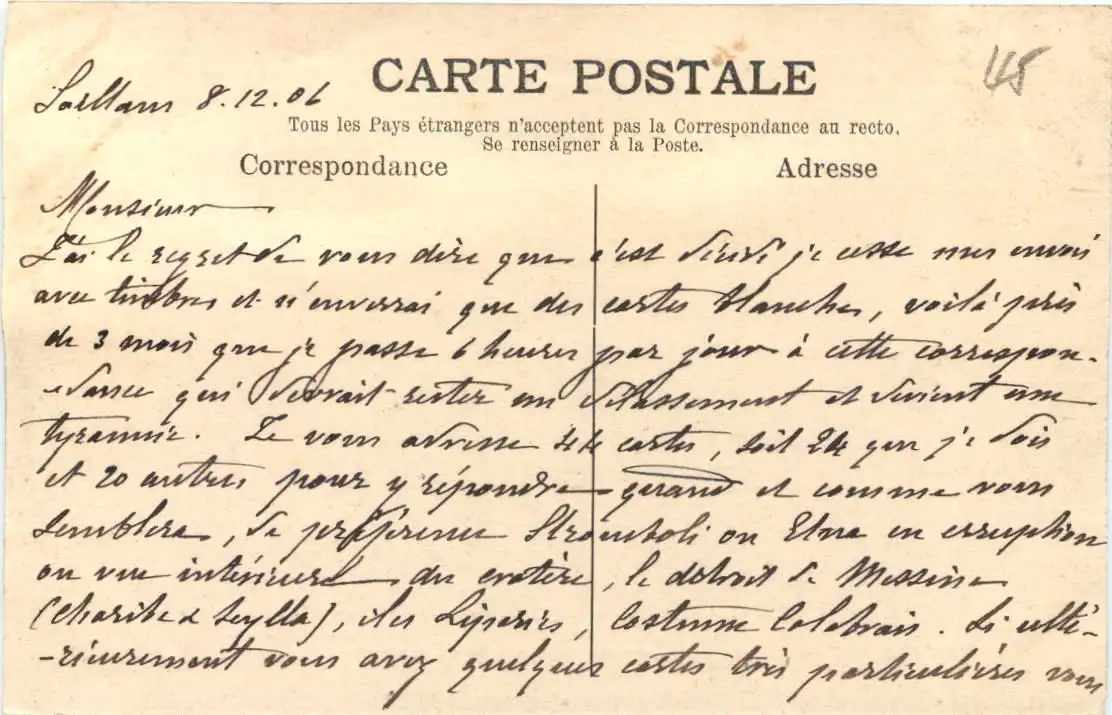 CARTE POSTALE
145
Saillans 8.12.06
Tous les Pays étrangers n'acceptent pas la Correspondance au recto.
Se renseigner à la Poste.
Correspondance
Adresse
Monsieur
J'ai le regret de vous dire que c'est décidé je cesse mes envois
avec timbres et n'enverrai que des cartes blanches, voilà près
de 3 mois que je passe 6 heures par jour à cette correspon-
-dance qui devrait rester un délassement et devient une
tyrannie. Je vous adresse 44 cartes, soit 24 que je dois
et 20 autres pour y répondre quand et comme vous
semblera, de préférence Stromboli ou Etna en erruption
ou vue intérieure du cratère, le détroit de Messine
(Charibe & Scylla), iles Liparies, Costume Calabrais. Si ulté-
-rieurement vous avez quelques cartes très particulières vous